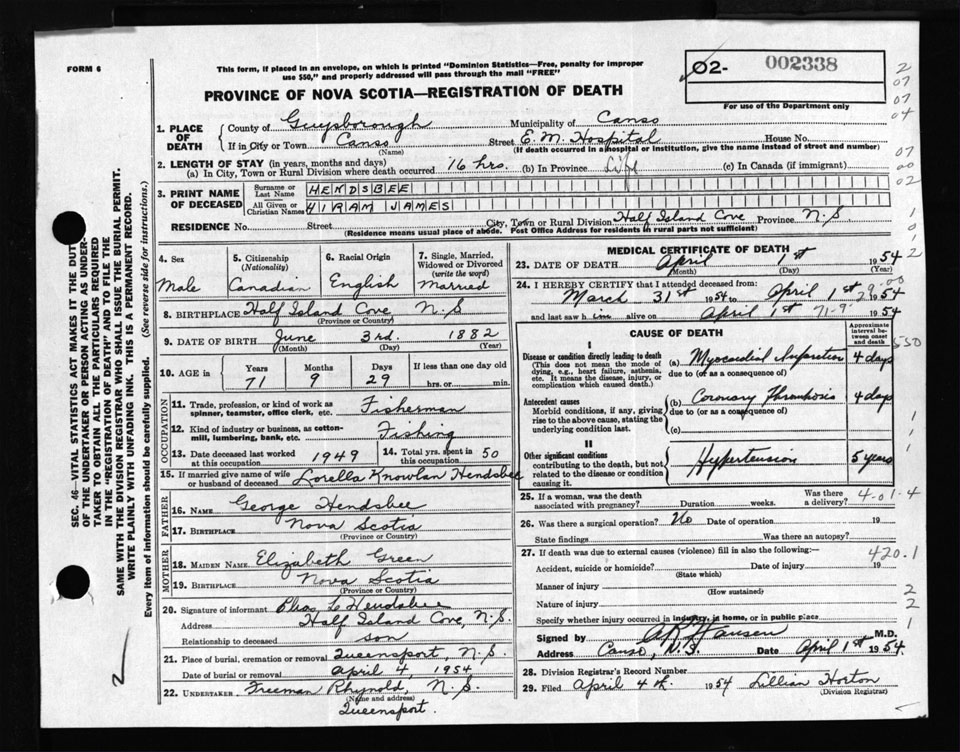 FORM 6
This form, if placed in an envelope, on which is printed "Dominion Statistics—Free, penalty for improper
use $50," and properly addressed will pass through the mail "FREE"
02- 002338
For use of the Department only
PROVINCE OF NOVA SCOTIA—REGISTRATION OF DEATH
2
07
07
04
07
00
02
1. PLACE OF DEATH
County of Guysborough Municipality of Canso
If in City or Town Canso Street E. M. Hospital House No.
(Name) (If death occurred in a hospital or institution, give the name instead of street and number)
2. LENGTH OF STAY (in years, months and days)
(a) In City, Town or Rural Division where death occurred 16 hrs. (b) In Province Life (c) In Canada (if immigrant)
3. PRINT NAME OF DECEASED
Surname or Last Name HENDSBEE
All Given or Christian Names HIRAM JAMES
RESIDENCE No. Street City, Town or Rural Division Half Island Cove Province N.S.
(Residence means usual place of abode. Post Office Address for residents in rural parts not sufficient)
4. Sex Male
5. Citizenship (Nationality) Canadian
6. Racial Origin English
7. Single, Married, Widowed or Divorced (write the word) Married
8. BIRTHPLACE Half Island Cove N.S.
(Province or Country)
9. DATE OF BIRTH June 3rd. 1882
(Month) (Day) (Year)
10. AGE in Years 71 Months 9 Days 29 If less than one day old hrs. or min.
OCCUPATION
11. Trade, profession, or kind of work as spinner, teamster, office clerk, etc. Fisherman
12. Kind of industry or business, as cotton-mill, lumbering, bank, etc. Fishing
13. Date deceased last worked at this occupation 1949 14. Total yrs. spent in this occupation 50
15. If married give name of wife or husband of deceased Lorella Knowlan Hendsbee
FATHER
16. NAME George Hendsbee
17. BIRTHPLACE Nova Scotia
(Province or Country)
MOTHER
18. MAIDEN NAME Elizabeth Green
19. BIRTHPLACE Nova Scotia
(Province or Country)
20. Signature of informant Chas L Hendsbee
Address Half Island Cove, N.S.
Relationship to deceased son
21. Place of burial, cremation or removal Queensport, N.S.
Date of burial or removal April 4, 1954
22. UNDERTAKER Freeman Rhynold, N.S.
(Name and address)
Queensport.
MEDICAL CERTIFICATE OF DEATH
23. DATE OF DEATH April 1st 1954
(Month) (Day) (Year)
24. I HEREBY CERTIFY that I attended deceased from:
March 31st 1954 to April 1st 1954
and last saw him alive on April 1st 1954
71-9-29-00
CAUSE OF DEATH
Approximate interval between onset and death
I
Disease or condition directly leading to death
(This does not mean the mode of dying, e.g., heart failure, asthenia, etc. It means the disease, injury, or complication which caused death.)
(a) Myocardial Infarction 4 days
due to (or as a consequence of)
Antecedent causes
Morbid conditions, if any, giving rise to the above cause, stating the underlying condition last.
(b) Coronary Thrombosis 4 days
due to (or as a consequence of)
(c)
II
Other significant conditions
contributing to the death, but not related to the disease or condition causing it.
Hypertension 5 years
25. If a woman, was the death associated with pregnancy? Duration weeks. Was there a delivery?
4-01-4
26. Was there a surgical operation? No Date of operation 19
State findings Was there an autopsy?
27. If death was due to external causes (violence) fill in also the following:—
420.1
Accident, suicide or homicide? Date of injury 19
(State which)
Manner of injury
(How sustained)
Nature of injury
Specify whether injury occurred in industry, in home, or in public place
Signed by Hansen M.D.
Address Canso, N.S. Date April 1st 1954
28. Division Registrar's Record Number
29. Filed April 4th. 1954 Lillian Horton
(Division Registrar)
SEC. 46—VITAL STATISTICS ACT MAKES IT THE DUTY
OF THE UNDERTAKER OR PERSON ACTING AS UNDER-
TAKER TO OBTAIN ALL THE PARTICULARS REQUIRED
IN THE "REGISTRATION OF DEATH" AND TO FILE THE
SAME WITH THE DIVISION REGISTRAR WHO SHALL ISSUE THE BURIAL PERMIT.
WRITE PLAINLY WITH UNFADING INK. THIS IS A PERMANENT RECORD.
Every item of information should be carefully supplied. (See reverse side for instructions.)
2